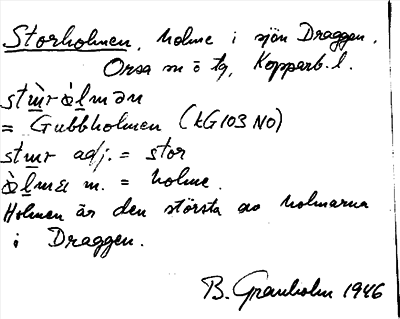 Storholmen, holme i sjön Draggen.
Orsa sn ö tg, Kopparb. l.
= Gubbholmen (kG103 NO)
adj. = stor
m. = holme.
Holmen är den största av holmarna
i Draggen.
B. Granholm 1946